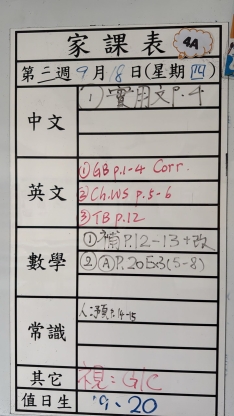 家課表 4A
第三週9月18日(星期四)
中文
① 實用文P.4
英文
① GB p.1-4 Corr.
② Ch.WS p.5-6
③ TB p.12
數學
① 補P.12-13+改
② ⒶP.20E3(5-8)
常識
人:預P.14-15
其它
視:G/C
值日生
19、20